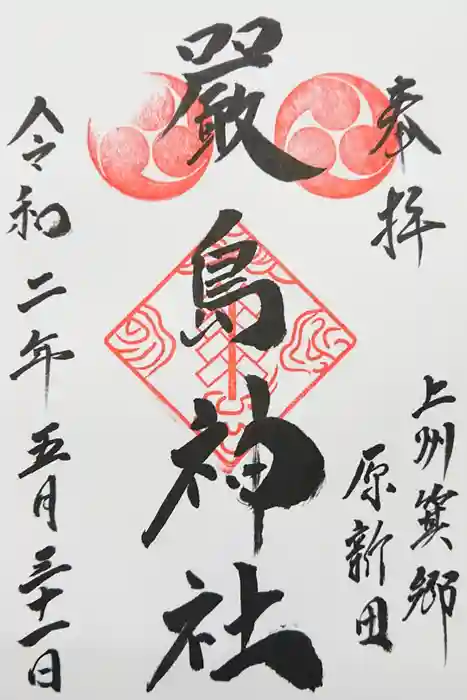 奉拝
上州箕郷
原新田
嚴島神社
令和二年五月三十一日